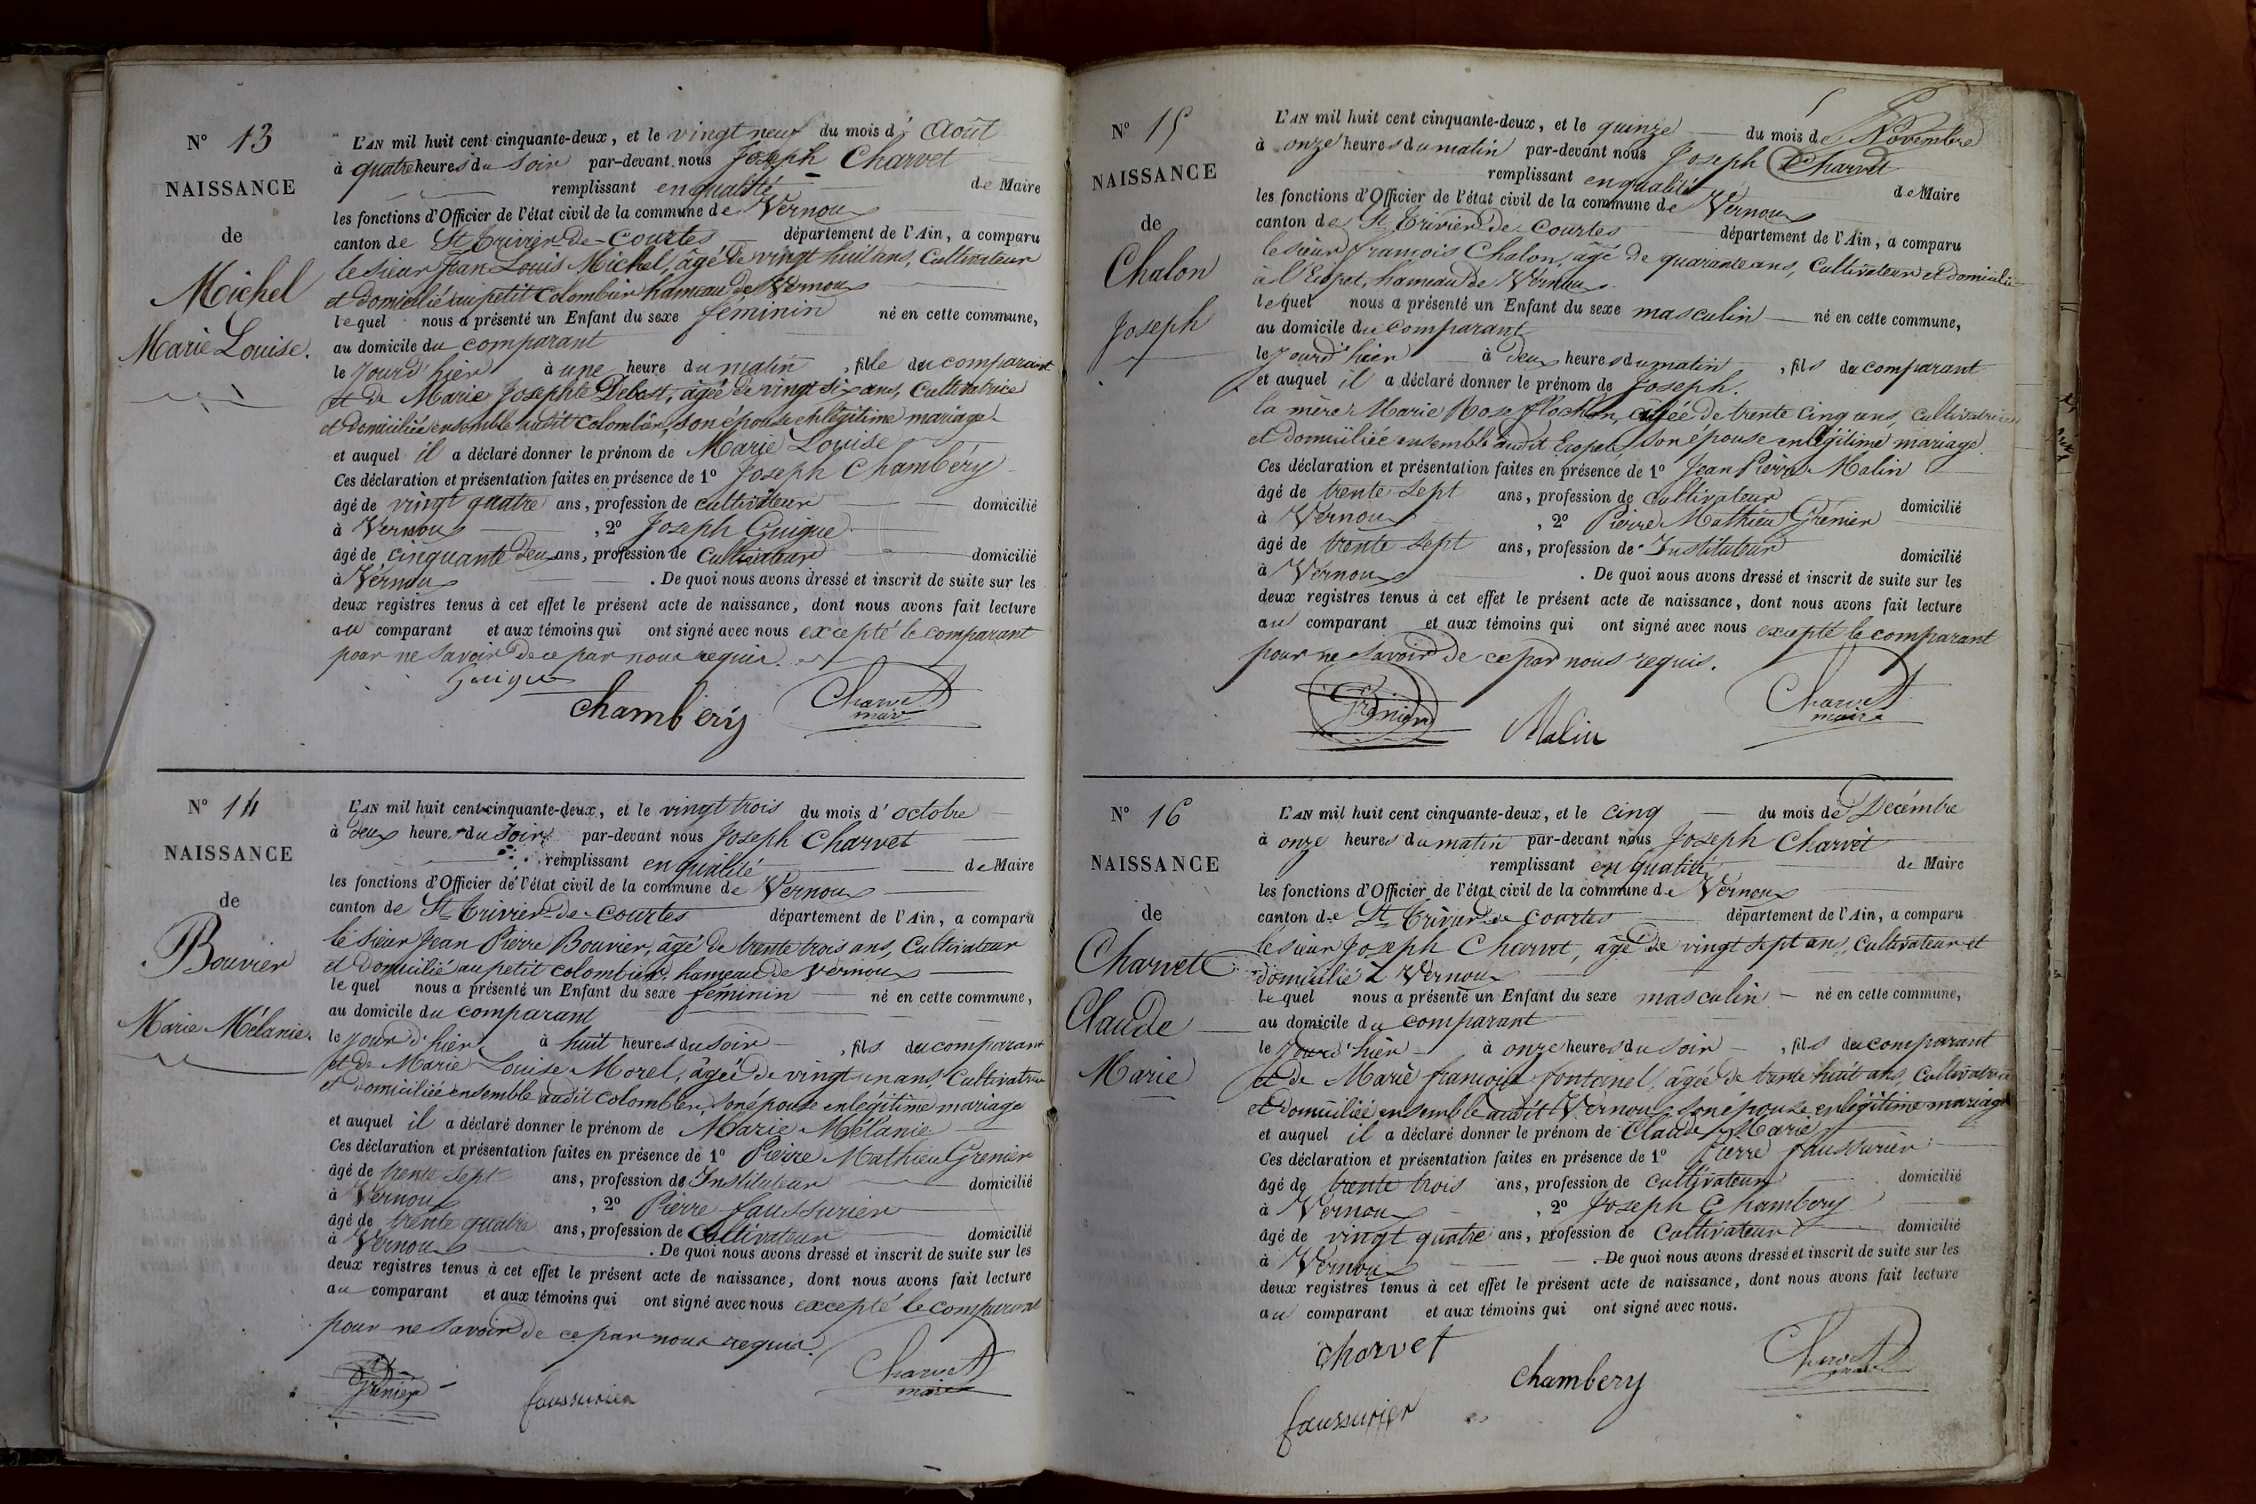 N° 13
NAISSANCE
de
Michel
Marie Louise.
L'AN mil huit cent cinquante-deux, et le vingt neuf du mois d' Août
à quatre heures du Soir par-devant nous Joseph Charvet
remplissant en qualité de Maire
les fonctions d'Officier de l'état civil de la commune de Vernoux
canton de St Trivier de Courtes département de l'Ain, a comparu
le sieur Jean Louis Michel, âgé de vingt huit ans, Cultivateur
et domicilié au petit Colombier hameau de Vernoux
lequel nous a présenté un Enfant du sexe féminin né en cette commune,
au domicile du comparant
le jour d'hier à une heure du matin, fille du comparant
et de Marie Josephte Debost, âgée de vingt six ans, Cultivatrice
et domiciliée ensemble audit Colombier, son épouse en légitime mariage
et auquel il a déclaré donner le prénom de Marie Louise
Ces déclaration et présentation faites en présence de 1° Joseph Chambéry
âgé de vingt quatre ans, profession de cultivateur domicilié
à Vernoux, 2° Joseph Guigue
âgé de cinquante deux ans, profession de Cultivateur domicilié
à Vernoux. De quoi nous avons dressé et inscrit de suite sur les
deux registres tenus à cet effet le présent acte de naissance, dont nous avons fait lecture
au comparant et aux témoins qui ont signé avec nous excepté le comparant
pour ne savoir de ce par nous requis.
Guigue
Chambéry Charvet
maire
N° 14
NAISSANCE
de
Bouvier
Marie Mélanie.
L'AN mil huit cent cinquante-deux, et le vingt trois du mois d'octobre
à deux heures du Soir par-devant nous Joseph Charvet
remplissant en qualité de Maire
les fonctions d'Officier de l'état civil de la commune de Vernoux
canton de St Trivier de Courtes département de l'Ain, a comparu
le sieur Jean Pierre Bouvier, âgé de trente trois ans, Cultivateur
et domicilié au petit colombier, hameau de Vernoux
lequel nous a présenté un Enfant du sexe féminin né en cette commune,
au domicile du comparant
le jour d'hier à huit heures du soir, fils du comparant
et de Marie Louise Morel, âgée de vingt un ans, Cultivatrice
et domiciliée ensemble audit Colombier son épouse en légitime mariage
et auquel il a déclaré donner le prénom de Marie Mélanie
Ces déclaration et présentation faites en présence de 1° Pierre Mathieu Grenier
âgé de trente sept ans, profession de Instituteur domicilié
à Vernoux, 2° Pierre faussurier
âgé de trente quatre ans, profession de Cultivateur domicilié
à Vernoux. De quoi nous avons dressé et inscrit de suite sur les
deux registres tenus à cet effet le présent acte de naissance, dont nous avons fait lecture
au comparant et aux témoins qui ont signé avec nous excepté le comparant
pour ne savoir de ce par nous requis.
Grenier faussurier Charvet
maire
N° 15
NAISSANCE
de
Chalon
Joseph
L'AN mil huit cent cinquante-deux, et le quinze du mois de Novembre
à onze heures du matin par-devant nous Joseph Charvet
remplissant en qualité de Maire
les fonctions d'Officier de l'état civil de la commune de Vernoux
canton de St Trivier de Courtes département de l'Ain, a comparu
le sieur françois Chalon, âgé de quarante ans, Cultivateur et domicilié
à hameau de Vernoux
lequel nous a présenté un Enfant du sexe masculin né en cette commune,
au domicile du comparant
le jour d'hier à deux heures du matin, fils du comparant
et auquel il a déclaré donner le prénom de Joseph.
la mère Marie Rose flochon, âgée de trente cinq ans, cultivatrice
et domiciliée ensemble audit son épouse en légitime mariage.
Ces déclaration et présentation faites en présence de 1° Jean Pierre Malin
âgé de trente sept ans, profession de Cultivateur domicilié
à Vernoux, 2° Pierre Mathieu Grenier
âgé de trente sept ans, profession de Instituteur domicilié
à Vernoux. De quoi nous avons dressé et inscrit de suite sur les
deux registres tenus à cet effet le présent acte de naissance, dont nous avons fait lecture
au comparant et aux témoins qui ont signé avec nous excepté le comparant
pour ne savoir de ce par nous requis.
Grenier Malin Charvet
maire
N° 16
NAISSANCE
de
Charvet
Claude
Marie
L'AN mil huit cent cinquante-deux, et le cinq du mois de Decémbre
à onze heures du matin par-devant nous Joseph Charvet
remplissant en qualité de Maire
les fonctions d'Officier de l'état civil de la commune de Vernoux
canton de St Trivier de Courtes département de l'Ain, a comparu
le sieur Joseph Charvet, âgé de vingt sept ans, Cultivateur et
domicilié à Vernoux
lequel nous a présenté un Enfant du sexe masculin né en cette commune,
au domicile du comparant
le jour d'hier à onze heures du soir, fils du comparant
et de Marie françoise fontanel, âgée de trente huit ans, Cultivatrice
et domiciliée ensemble audit Vernoux son épouse en légitime mariage
et auquel il a déclaré donner le prénom de Claude Marie
Ces déclaration et présentation faites en présence de 1° Pierre faussurier
âgé de trente trois ans, profession de Cultivateur domicilié
à Vernoux, 2° Joseph Chambery
âgé de vingt quatre ans, profession de Cultivateur domicilié
à Vernoux. De quoi nous avons dressé et inscrit de suite sur les
deux registres tenus à cet effet le présent acte de naissance, dont nous avons fait lecture
au comparant et aux témoins qui ont signé avec nous.
Charvet Chambery Charvet
faussurier